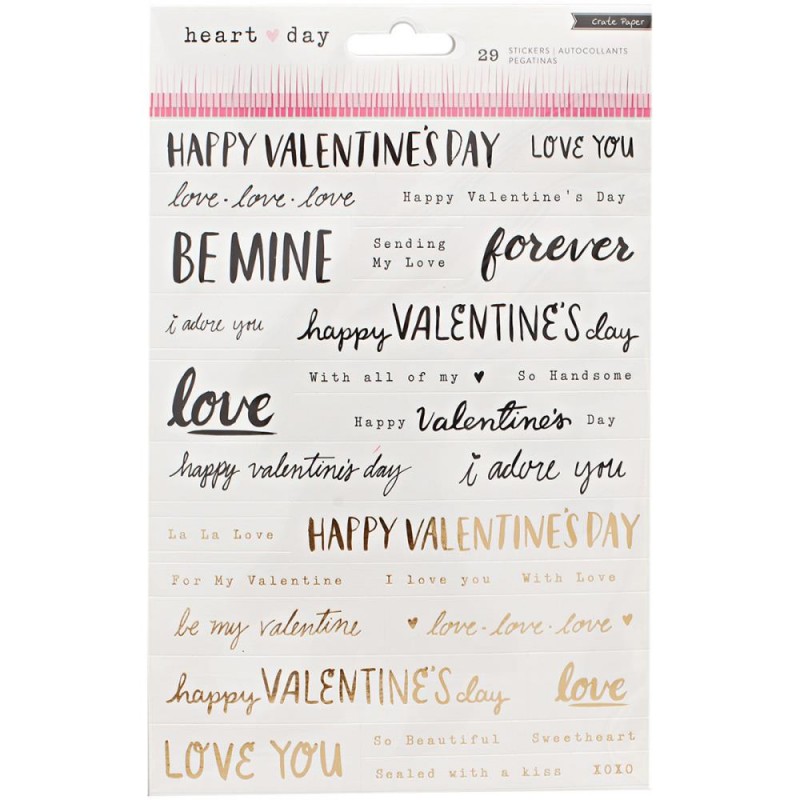 heart ♥ day
Crate Paper
29 STICKERS | AUTOCOLLANTS
PEGATINAS
HAPPY VALENTINE'S DAY LOVE YOU
love · love · love Happy Valentine's Day
BE MINE
Sending
My Love
forever
i adore you happy VALENTINE'S day
With all of my ♥ So Handsome
love
Happy Valentine's Day
happy valentine's day i adore you
La La Love HAPPY VALENTINE'S DAY
For My Valentine I love you With Love
be my valentine ♥ love · love · love ♥
happy VALENTINE'S day love
LOVE YOU
So Beautiful Sweetheart
Sealed with a kiss XOXO